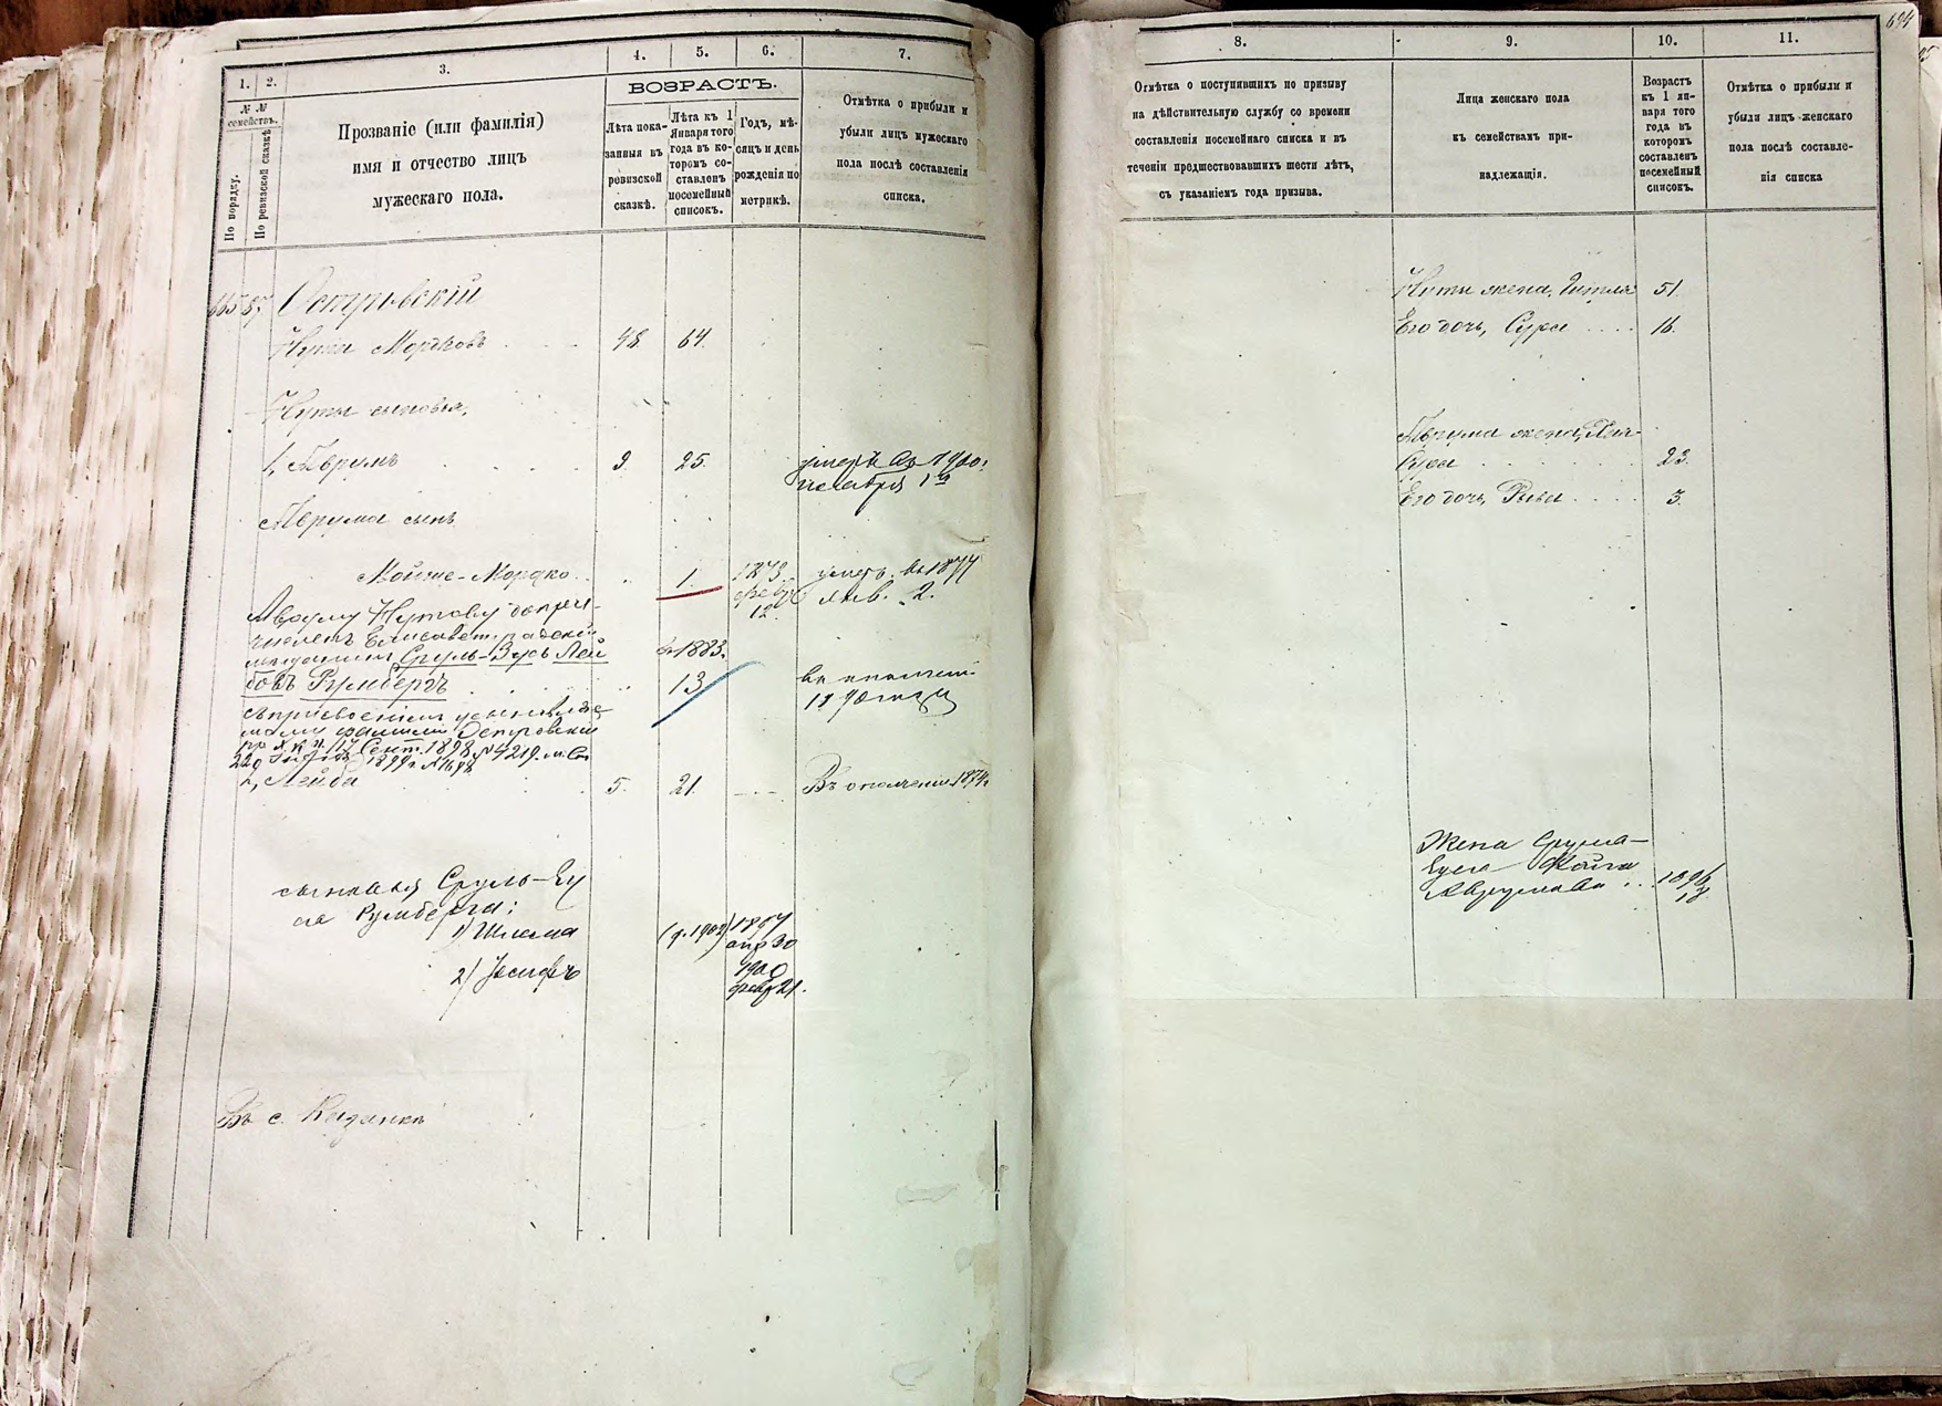 694
1.
2.
3.
4.
5.
6.
7.
ВОЗРАСТЪ.
№ №
семействъ.
По порядку.
По ревизской сказкѣ
Прозваніе (или фамилія)
имя и отчество лицъ
мужескаго пола.
Лѣта пока-
занныя въ
ревизской
сказкѣ.
Лѣта къ 1
Января того
года въ ко-
торомъ со-
ставленъ
посемейный
списокъ.
Годъ, мѣ-
сяцъ и день
рожденія по
метрикѣ.
Отмѣтка о прибыли и
убыли лицъ мужескаго
пола послѣ составленія
списка.
Островскій
Нута Мордковъ 48. 64.
Нуты сыновья,
1, Аврумъ 9. 25. умеръ въ 1900
Аврума сынъ
Мойше-Мордко 1. 1873 умеръ въ 1877
февр янв. 2.
12.
Авруму Нутову допри-
численъ Елисаветградскій
мѣщанинъ Сруль-Зусь Лей
бовъ Румбергъ 13
въ 1883.
съ присвоеніемъ усыновляе
мому фамиліи Островскій
2, Лейба 5. 21. Въ ополченіи 1874
сыновья Сруль-Зу
са Румберга:
1) Шлема 1897
апр 30
2) Іосифъ 1900
февр 21.
Въ с.
8.
9.
10.
11.
Отмѣтка о поступившихъ по призыву
на дѣйствительную службу со времени
составленія посемейнаго списка и въ
теченіи предшествовавшихъ шести лѣтъ,
съ указаніемъ года призыва.
Лица женскаго пола
къ семействамъ при-
надлежащія.
Возрастъ
къ 1 ян-
варя того
года въ
которомъ
составленъ
посемейный
списокъ.
Отмѣтка о прибыли и
убыли лицъ женскаго
пола послѣ составле-
нія списка
Нуты жена, Гитля 51.
Его дочь, Сура 16.
Аврума жена, Хая-
Сура 23.
Его дочь, Рива 3.
Жена Сруля-
Зуся Хайка
Аврумова 1896